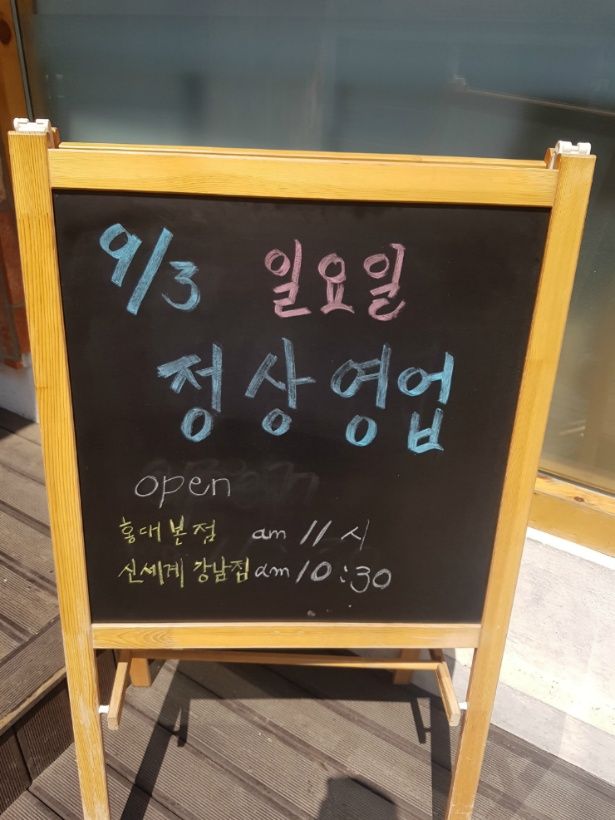 9/3 일요일
정상영업
open
홍대본점 am 11시
신세계 강남점 am 10:30